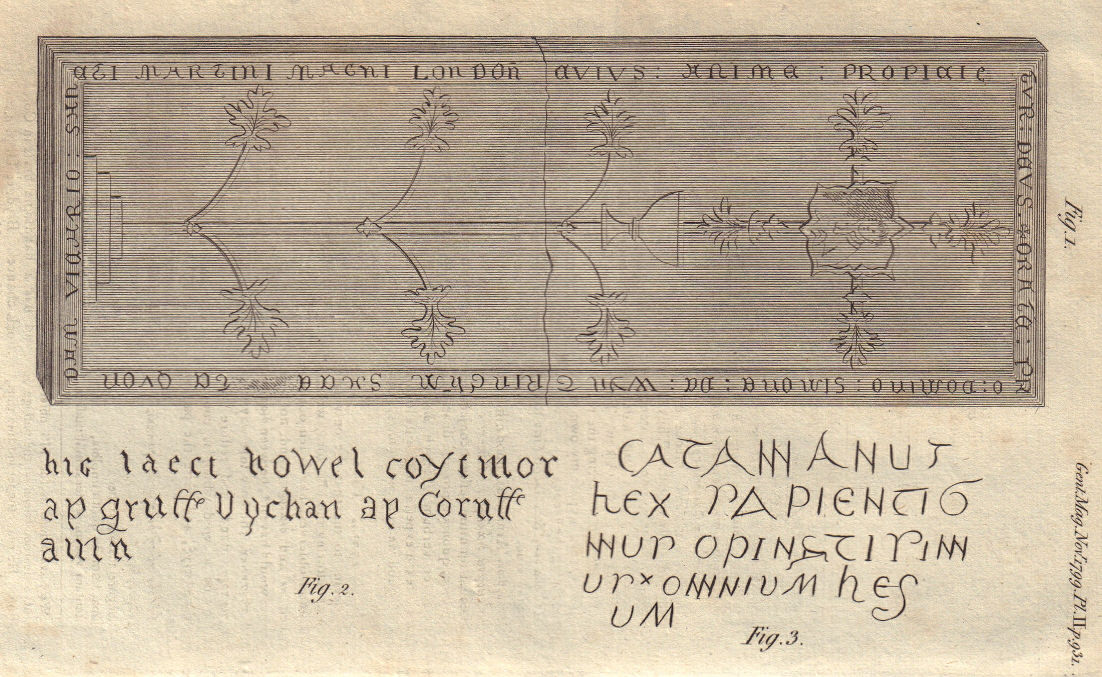 CATI MARTINI MAGNI LONDOÑ CVIVS : ANIME : PROPICIE
TVR : DEVS : ORATE : PR
O : DOMINO : SIMONE : DE : WYNT RINGHM
QVON
DAM VICARIO : SAN
Fig. 1.
hic Iacet howel coytmor
ap gruffe Vychan ap Goruffe
amn
Fig. 2.
CATAMANUS
REX SAPIENTIS
IMUS OPINATISIM
US × OMNIUM REG
UM
Fig. 3.
Gent. Mag. Nov. 1799. Pl. II. p. 931.